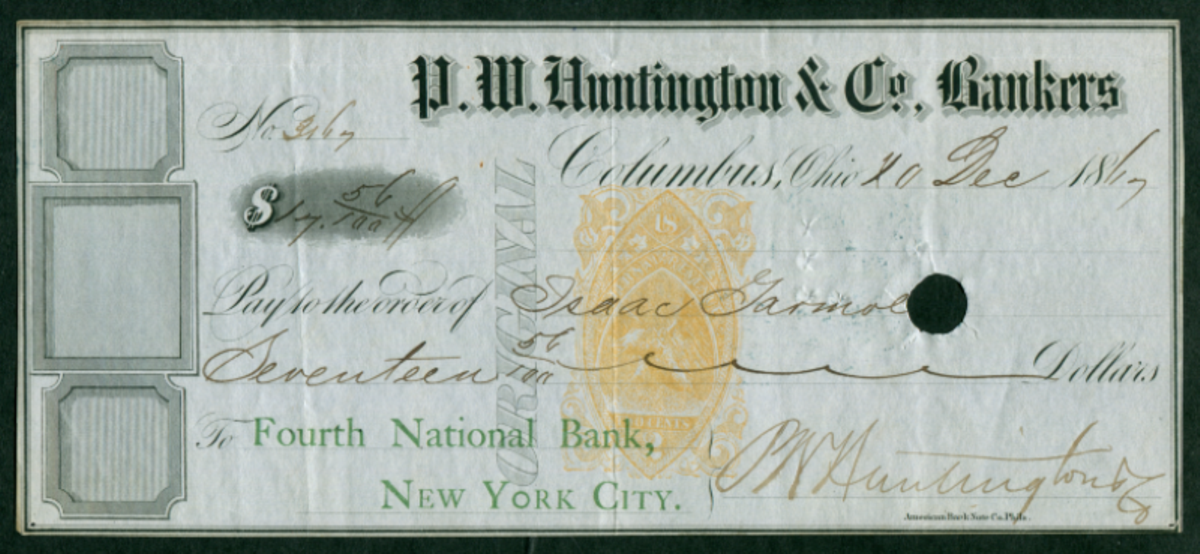 P. W. Huntington & Co, Bankers
No. 3167
Columbus, Ohio 20 Dec 1867
$ 17. 56/100
ORIGINAL
Pay to the order of Isaac
Seventeen 56/100 Dollars
To Fourth National Bank,
New York City.
P W Huntington & Co
American Bank Note Co. Phila.